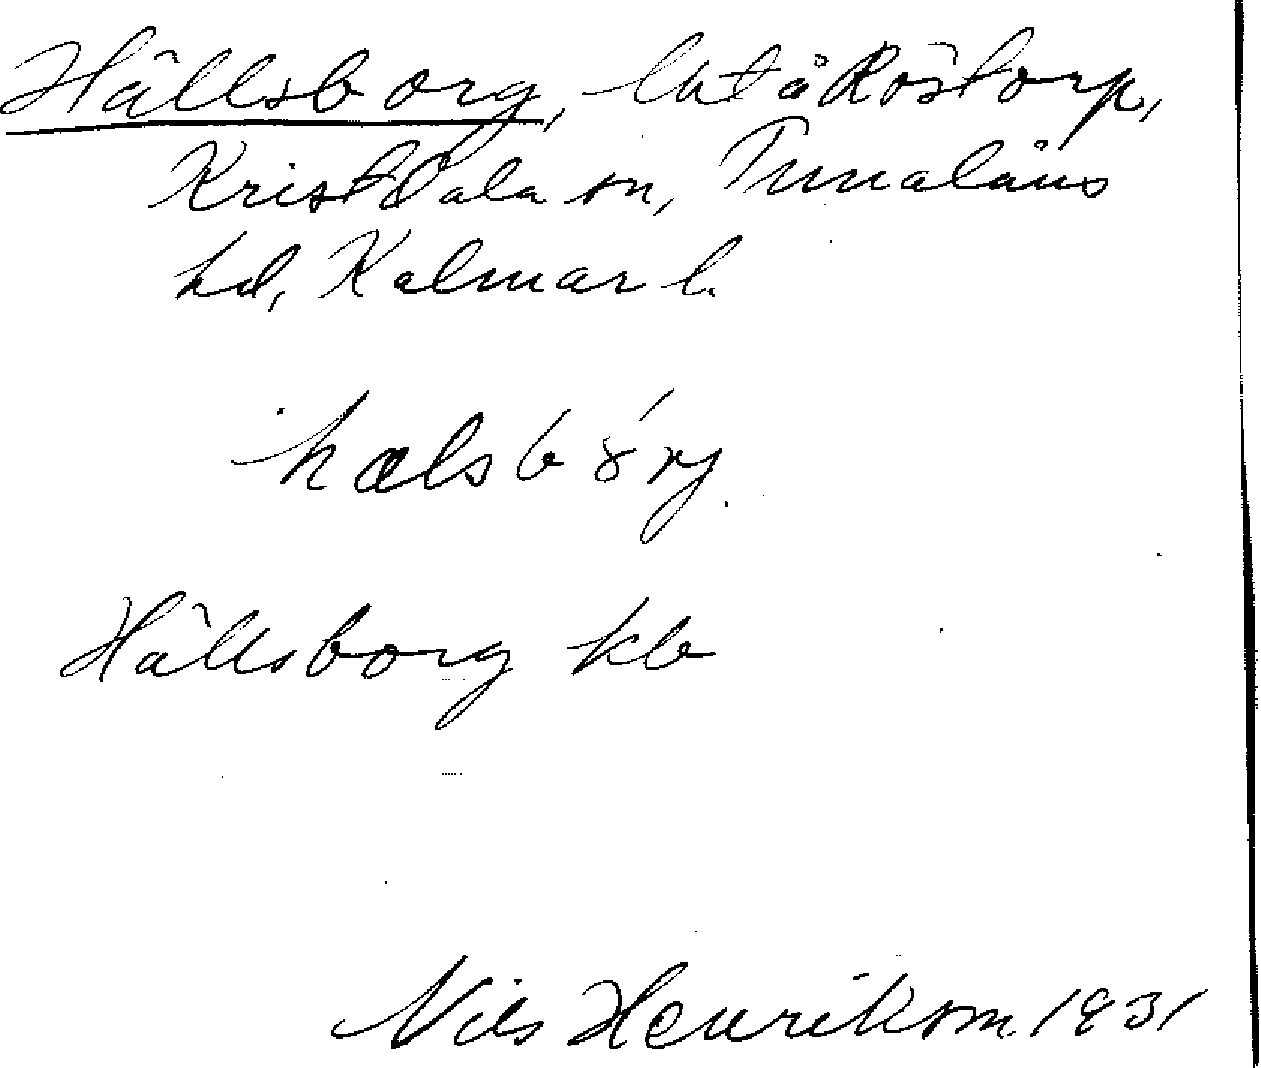 Hällsborg, lht å Röstorp,
Kristdala sn, Tunaläns
hd, Kalmar l.
hælsbórj.
Hällsborg kb
Nils Henrikson 1931